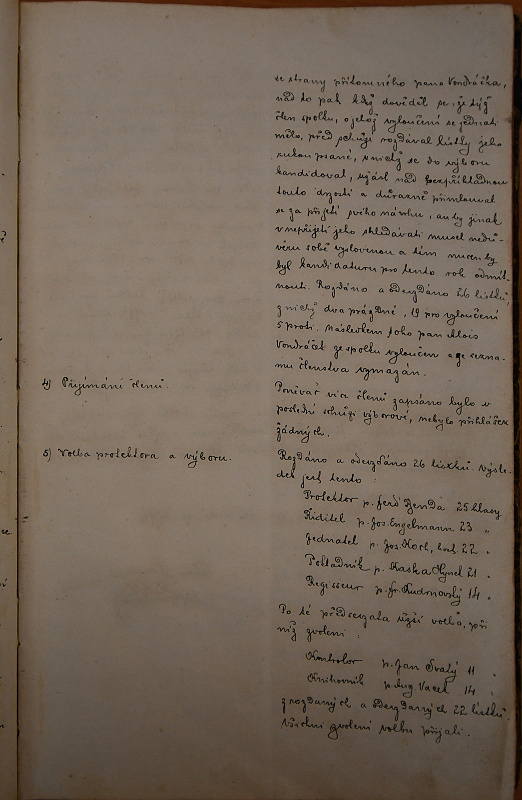 se strany přítomného pana Vondráčka,
nad to pak když dověděl se, že týž
člen spolku, o jehož vyloučení se jednati
mělo, před schůzí rozdával lístky jeho
rukou psané, v nichž se do výboru
kandidoval, užásl nad bezpříkladnou
touto drzostí a důrazně přimlouval
se za přijetí svého návrhu, an by jinak
v nepřijetí jeho shledávati musel nedů-
věru sobě vyslovenou a tím nucen by
byl kandidaturu pro tento rok odmít-
nouti. Rozdáno a odevzdáno 26 lístků,
z nichž dva prázdné, 19 pro vyloučení
5 proti. Následkem toho pan Alois
Vondráček ze spolku vyloučen a ze sezna-
mu členstva vymazán.
4) Přijímání členů.
Poněvač více členů zapsáno bylo v
poslední schůzi výborové, nebylo přihlášek
žádných.
5) Volba protektora a výboru.
Rozdáno a odevzdáno 26 lístků. Výsle-
dek jest tento:
Protektor p. Ferd. Benda 25 hlasy
Ředitel p. Jos. Engelmann 23 "
Jednatel p. Jos. Koch, 22 "
Pokladník p. Kaska Hynek 21 "
Regisseur p. Fr. Kudrnovský 14 "
Po té předsevzata užší volba, při
níž zvoleni:
Kontrolor p. Jan Svatý 11 "
Knihovník p. Aug. Vacek 14 "
z rozdaných a odevzdaných 22 lístků.
Všichni zvolení volbu přijali.